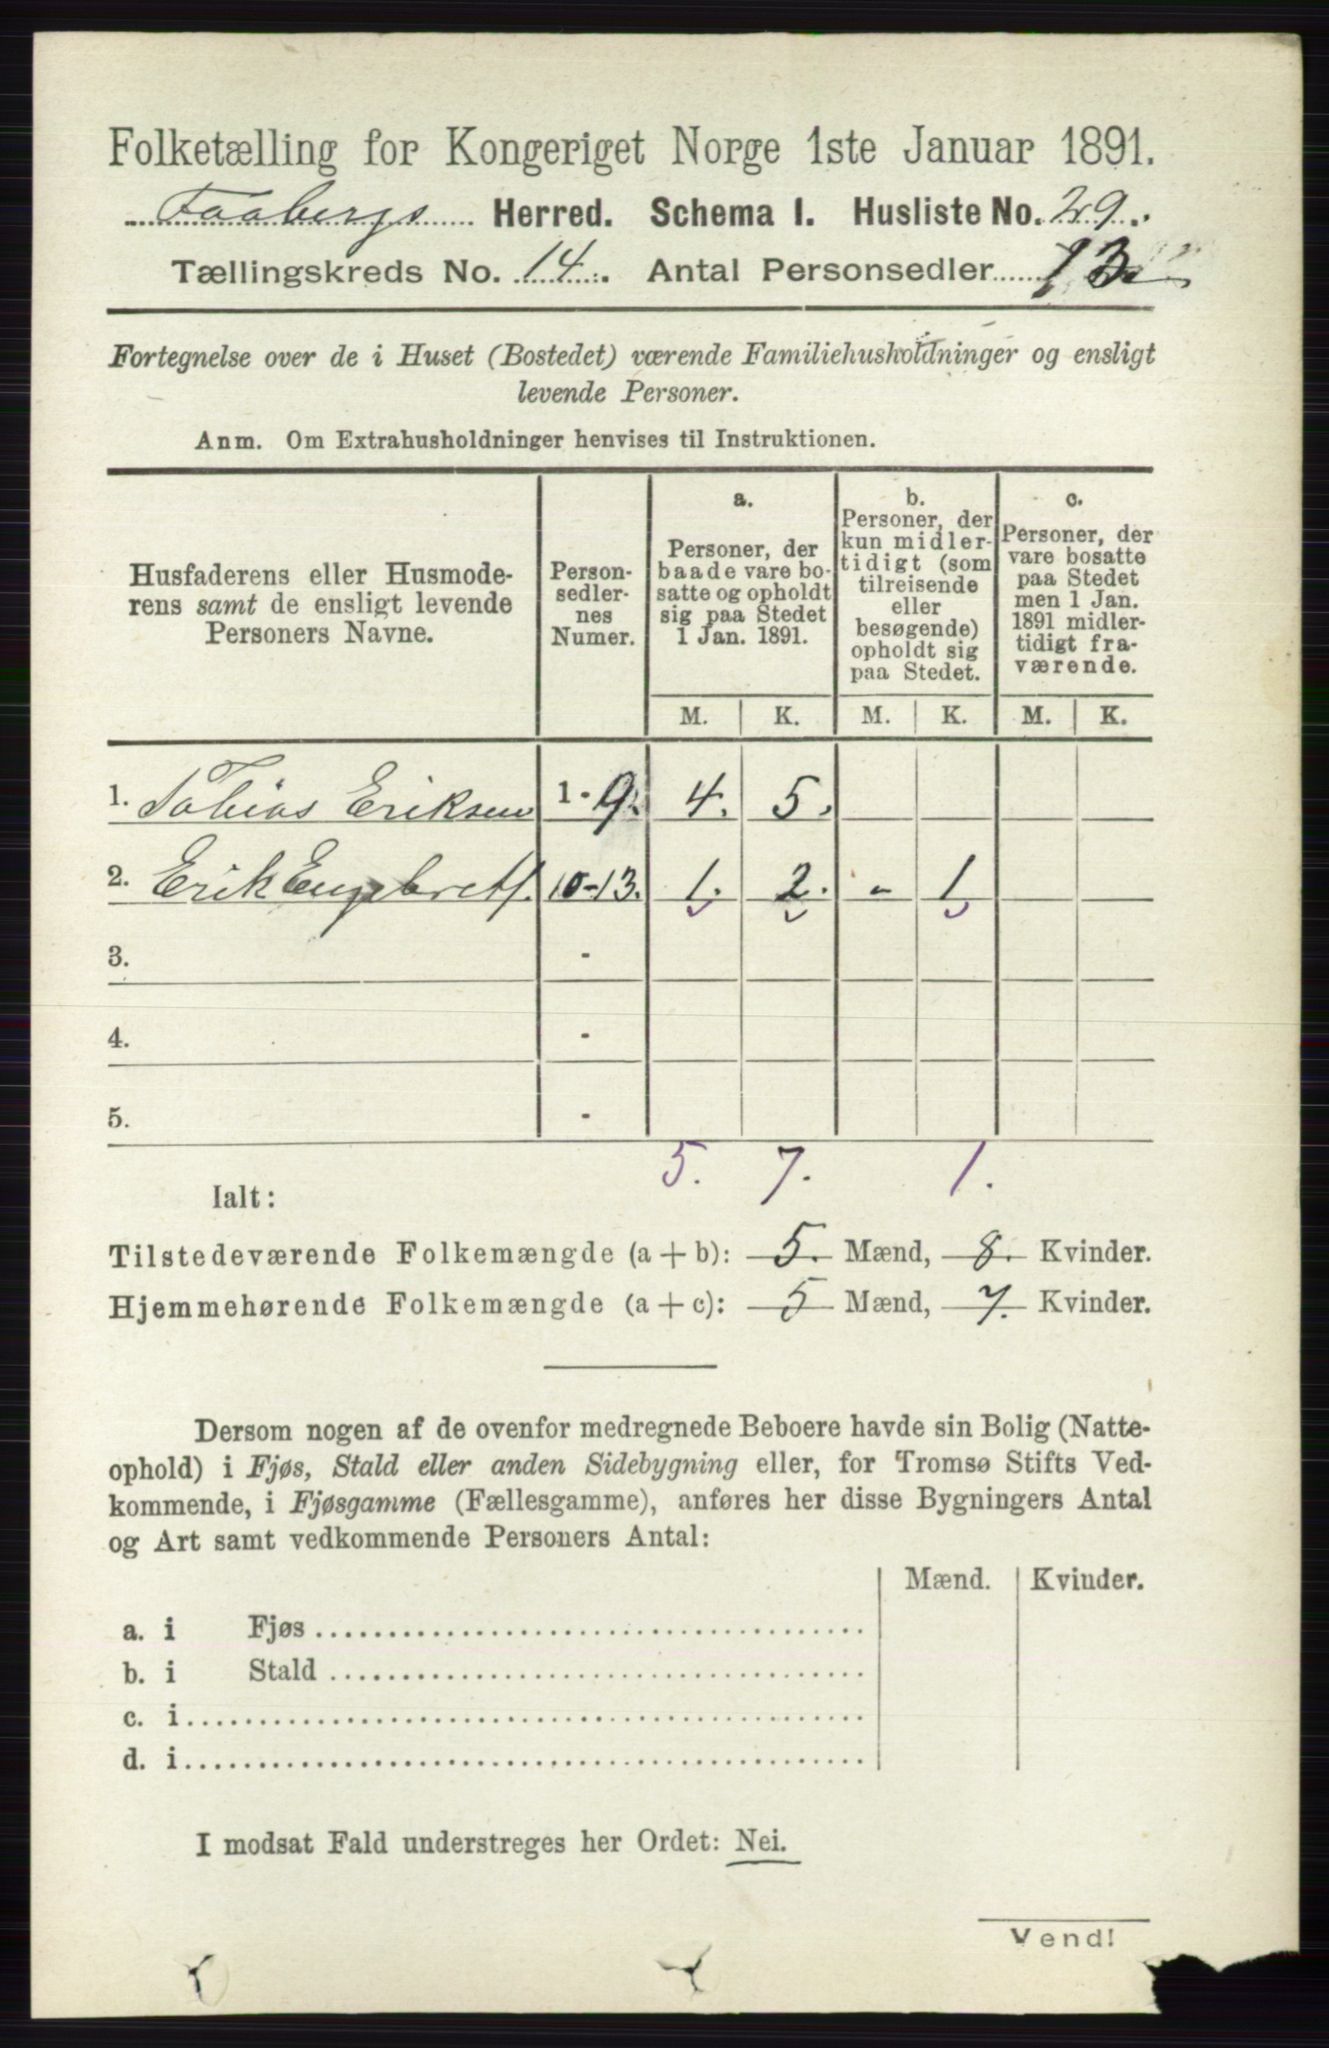 Folketælling for Kongeriget Norge 1ste Januar 1891.
Faabergs Herred. Schema I. Husliste No. 29.
Tællingskreds No. 14. Antal Personsedler 13.
Fortegnelse over de i Huset (Bostedet) værende Familiehusholdninger og ensligt
levende Personer.
Anm. Om Extrahusholdninger henvises til Instruktionen.
Husfaderens eller Husmode-
rens samt de ensligt levende
Personers Navne.
Person-
sedler-
nes
Numer.
a.
Personer, der
baade vare bo-
satte og opholdt
sig paa Stedet
1 Jan. 1891.
b.
Personer, der
kun midler-
tidigt (som
tilreisende
eller
besøgende)
opholdt sig
paa Stedet.
c.
Personer, der
vare bosatte
paa Stedet
men 1 Jan.
1891 midler-
tidigt fra-
værende.
M. K. M. K. M. K.
1. Tobias Eriksen 1-9. 4. 5.
2. Erik Engebretf. 10-13. 1. 2. - 1
3. -
4. -
5. -
5. 7. 1.
Ialt:
Tilstedeværende Folkemængde (a+b): 5. Mænd, 8. Kvinder.
Hjemmehørende Folkemængde (a+c): 5 Mænd, 7. Kvinder.
Dersom nogen af de ovenfor medregnede Beboere havde sin Bolig (Natte-
ophold) i Fjøs, Stald eller anden Sidebygning eller, for Tromsø Stifts Ved-
kommende, i Fjøsgamme (Fællesgamme), anføres her disse Bygningers Antal
og Art samt vedkommende Personers Antal:
Mænd. Kvinder.
a. i Fjøs
b. i Stald
c. i
d. i
I modsat Fald understreges her Ordet: Nei.
Vend!